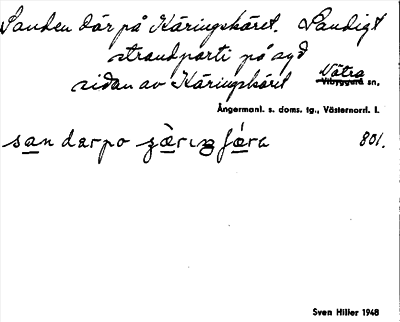 Sanden där på Käringskäret. Sandigt
strandparti på syd
sidan av Käringskäret Nätra
Vibyggerå sn.
Ångermanl. s. doms. tg., Västernorrl. l.
801.
Sven Hiller 1948